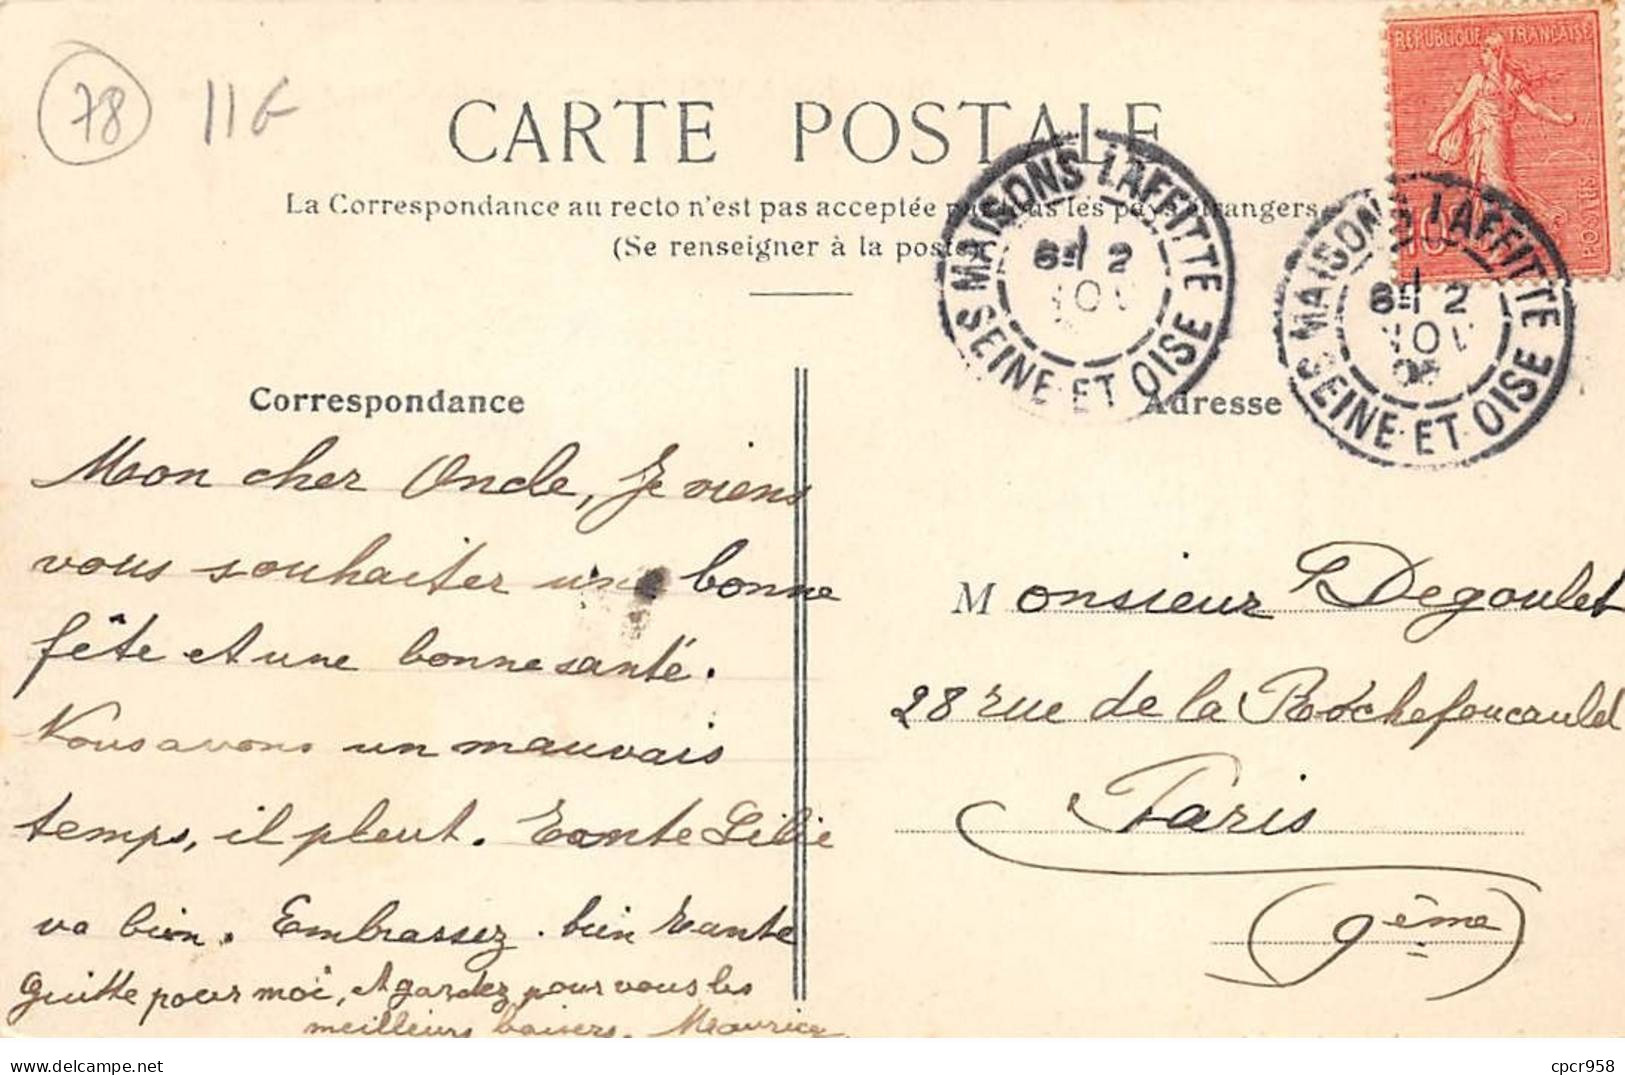 78 11G
CARTE POSTALE
REPUBLIQUE FRANÇAISE
POSTES
10
La Correspondance au recto n'est pas acceptée par tous les pays étrangers
(Se renseigner à la poste)
MAISONS LAFFITTE
SEINE ET OISE
MAISONS LAFFITTE
SEINE ET OISE
Correspondance
Mon cher Oncle, Je viens
vous souhaiter une bonne
fête et une bonne santé.
Nous avons un mauvais
temps, il pleut. Tante Lilie
va bien. Embrassez bien tante
Guitte pour moi, et gardez pour vous les
meilleurs baisers. Maurice
Adresse
Monsieur Degoulet
28 rue de la Rochefoucauld
Paris
(9ème)
cpcr958